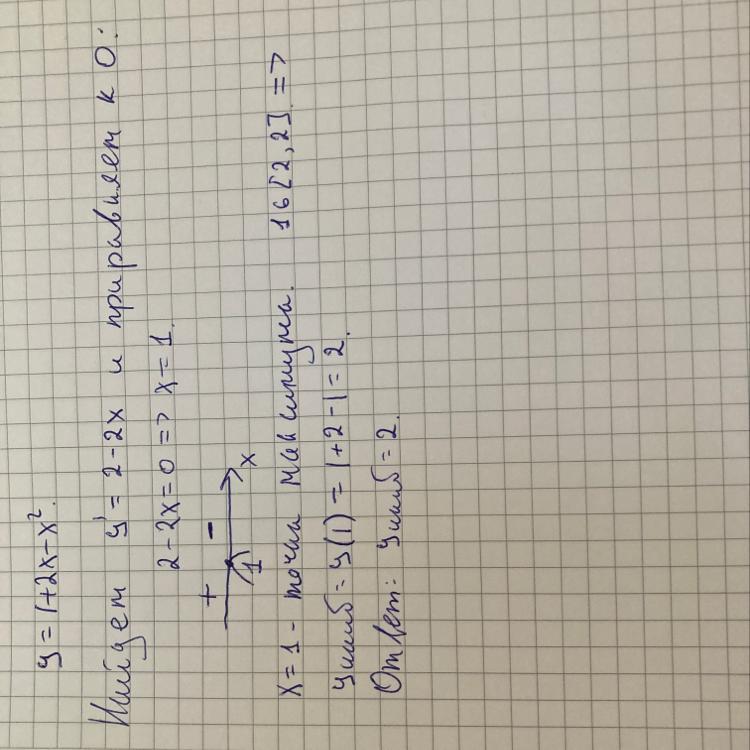 y = 1+2x-x².
Найдем y' = 2-2x и приравняем к 0:
2-2x=0 => x=1.
+ -
1 x
x=1 - точка максимума. 1 ∈ [2,2] =>
yнаиб = y(1) = 1+2-1=2.
Ответ: yнаиб=2.